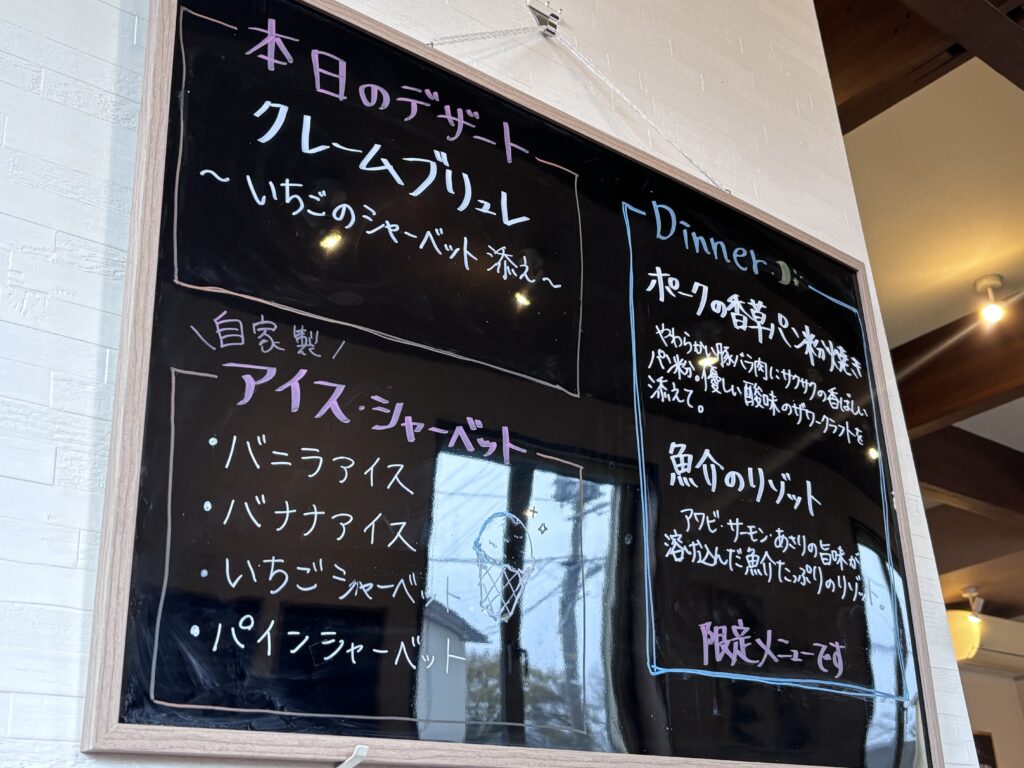 本日のデザート
クレームブリュレ
～いちごのシャーベット添え～
\自家製/
アイス・シャーベット
・バニラアイス
・バナナアイス
・いちごシャーベット
・パインシャーベット
Dinner
ポークの香草パン粉焼き
やわらかい豚バラ肉にサクサクの香ばしい
パン粉。優しい酸味のザワークラフトを
添えて。
魚介のリゾット
アワビ・サーモン・あさりの旨味が
溶け込んだ魚介たっぷりのリゾット。
限定メニューです